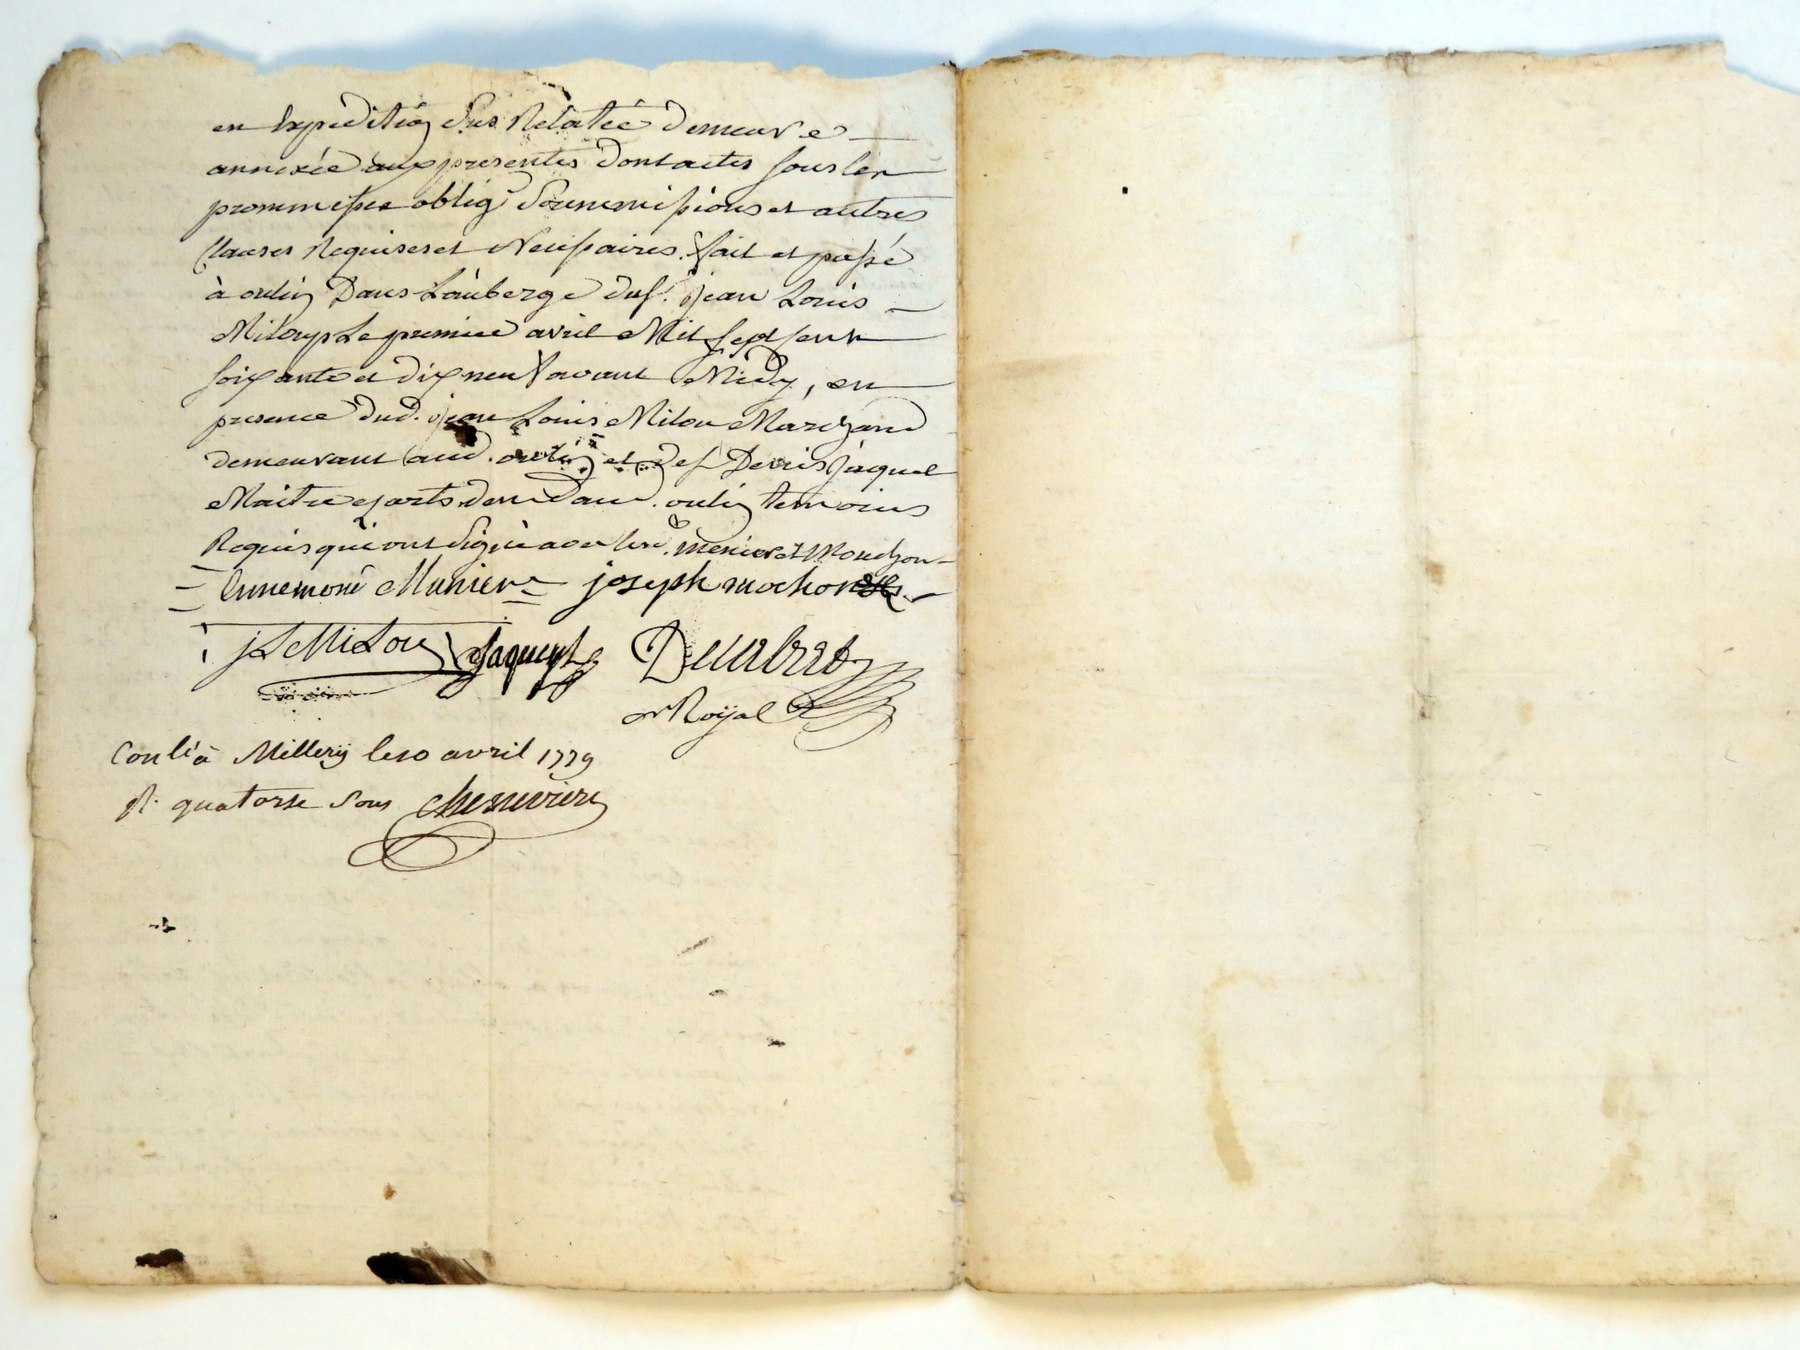 en Expedition sus Relatée demeure
annexée aux presentes dont actes sous les
prommesses oblig.s soummissions et autres
Clauses Requises et Necessaires. fait et passé
à oulin Dans L'auberge du s.r jean Louis
Milou Le premier avril Mil sept sent
soixante et dix neuf avant Midy, en
presence dud. jean Louis Milou Marchand
demeurant aud. oulin et de s.r Denis jaquet
Maitre es arts dem.t aud. oulin temoins
Requis qui ont signé avec lesd. menier et Mouchon
Ennemond Munier joseph mochon
JL Milou Jaquet
n Royal
Conlé à Millery le 10 avril 1779
R. quatorse sous chenevière